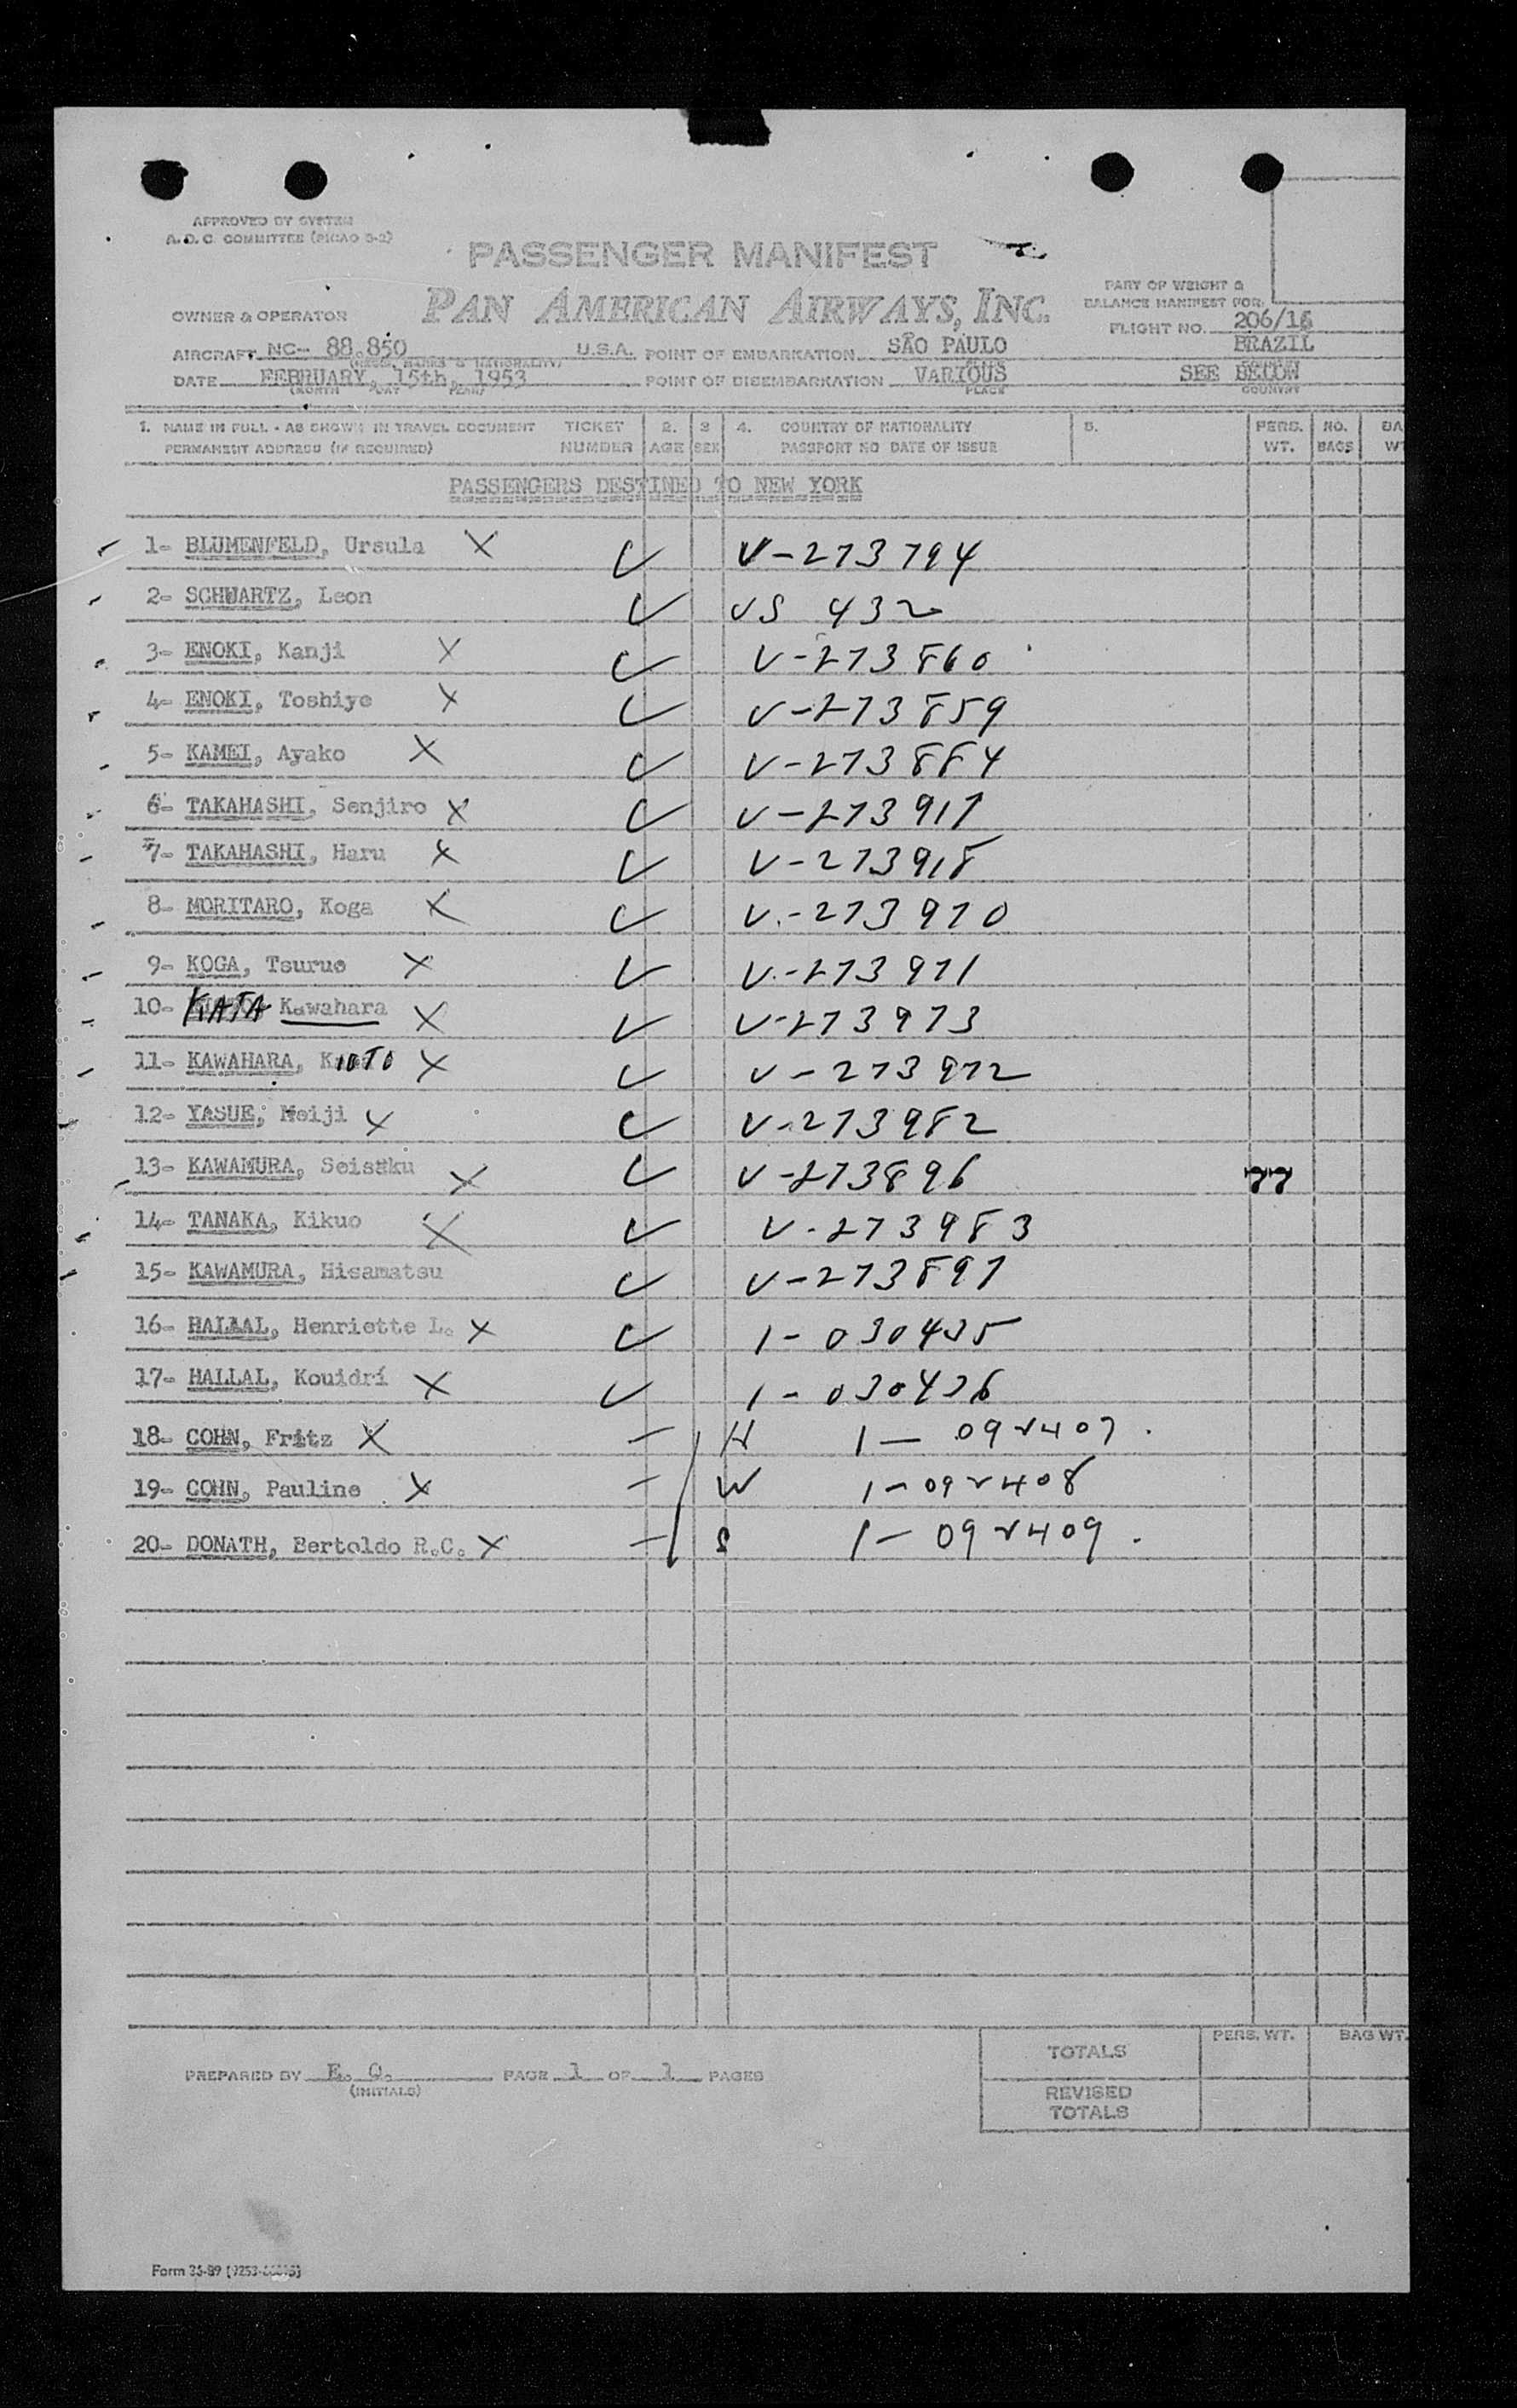 APPROVED BY SYSTEM
A.D.C. COMMITTEE (PICAO 5-2)
PASSENGER MANIFEST
PAN AMERICAN AIRWAYS, INC.
PART OF WEIGHT &
BALANCE MANIFEST FOR:
OWNER & OPERATOR
FLIGHT NO. 206/16
AIRCRAFT NC- 88.850 U.S.A. POINT OF EMBARKATION SÃO PAULO BRAZIL
(REGIS. MARKS & NATIONALITY)
DATE FEBRUARY, 15th, 1953 POINT OF DISEMBARKATION VARIOUS SEE BELOW
(MONTH DAY YEAR) PLACE COUNTRY
1. NAME IN FULL - AS SHOWN IN TRAVEL DOCUMENT TICKET 2. 3 4. COUNTRY OF NATIONALITY 5. PERS. NO. BA
PERMANENT ADDRESS (IF REQUIRED) NUMBER AGE SEX PASSPORT NO DATE OF ISSUE WT. BAGS WT
PASSENGERS DESTINED TO NEW YORK
1- BLUMENFELD, Ursula X ✓ V-273794
2- SCHWARTZ, Leon ✓ VS 432
3- ENOKI, Kanji X ✓ V-273860
4- ENOKI, Toshiye X ✓ V-273859
5- KAMEI, Ayako X ✓ V-273884
6- TAKAHASHI, Senjiro X ✓ V-273917
7- TAKAHASHI, Haru X ✓ V-273918
8- MORITARO, Koga X ✓ V-273970
9- KOGA, Tsuruo X ✓ V-273971
10- KATA Kawahara X ✓ V-273973
11- KAWAHARA, X ✓ V-273972
12- YASUE, Meiji X ✓ V-273982
13- KAWAMURA, Seisaku X ✓ V-273896 77
14- TANAKA, Kikuo X ✓ V-273983
15- KAWAMURA, Hisamatsu ✓ V-273897
16- HALLAL, Henriette L. X ✓ 1-030435
17- HALLAL, Kouidri X ✓ 1-030436
18- COHN, Fritz X - H 1-092407
19- COHN, Pauline X - W 1-092408
20- DONATH, Bertoldo R.C. X - S 1-092409
TOTALS PERS. WT. BAG WT.
PREPARED BY E. O. PAGE 1 OF 1 PAGES
(INITIALS)
REVISED
TOTALS
Form 36-89